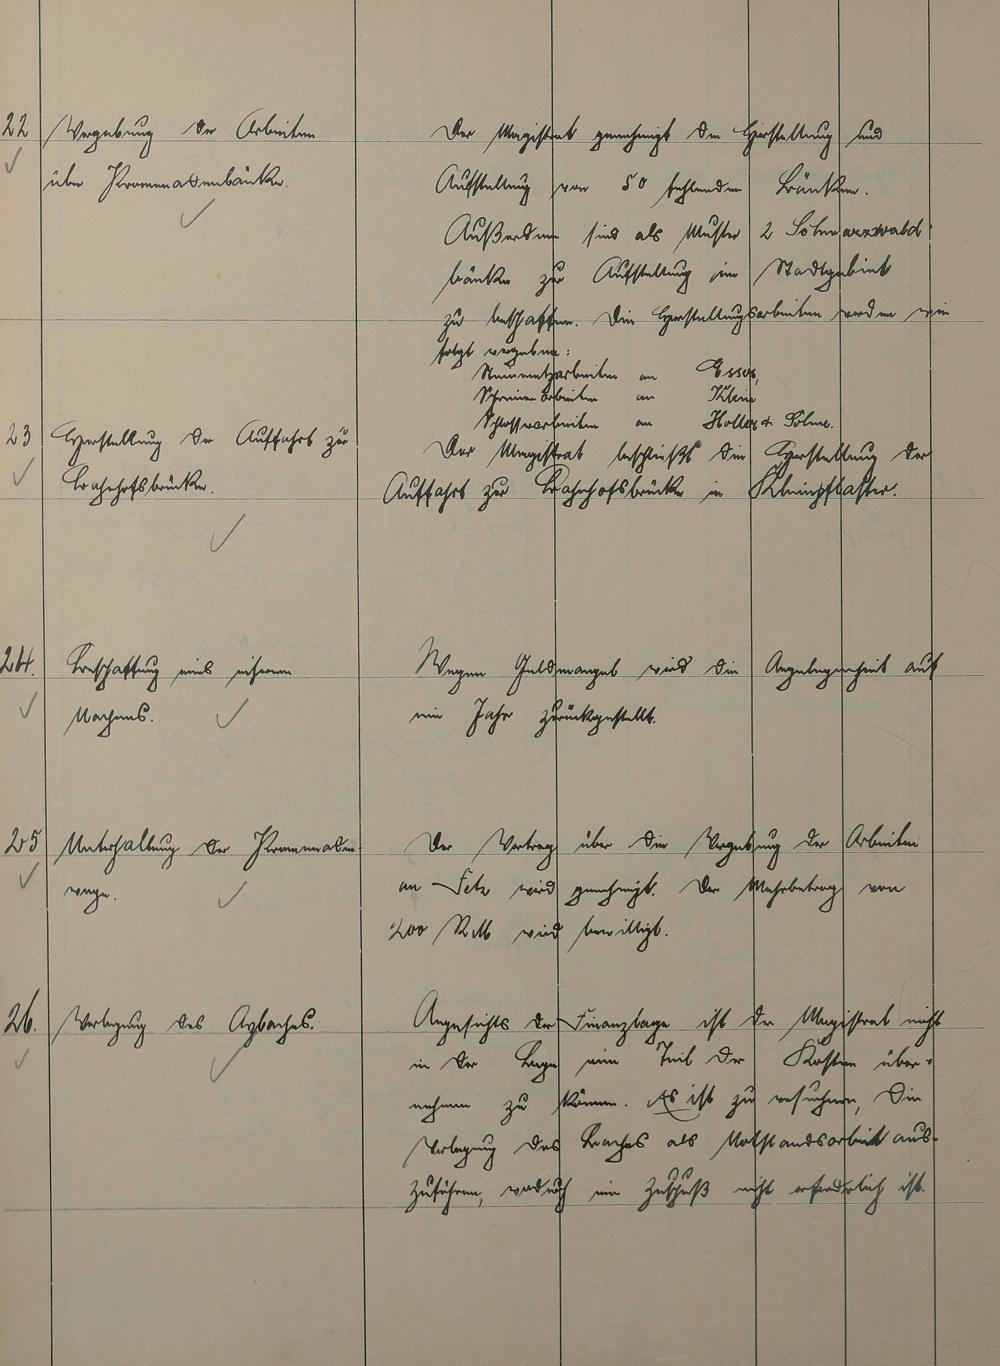 22 Vergebung der Arbeiten
über Promenadenbänke.
Der Magistrat genehmigt die Herstellung und
Aufstellung von 50 fehlenden Bänken.
Außerdem sind als Muster 2 Schwarzwald-
bänke zur Aufstellung im Stadtgebiet
zu beschaffen. Die Herstellungsarbeiten werden wie
folgt vergeben:
Steinmetzarbeiten an Esser,
Schreinerarbeiten an Klein
Schlosserarbeiten an Holler & Söhne.
23 Herstellung der Auffahrt zur
Bahnhofsbrücke.
Der Magistrat beschließt die Herstellung der
Auffahrt zur Bahnhofsbrücke in Kleinpflaster.
24. Beschaffung eines eisernen
Nachens.
Wegen Geldmangel wird die Angelegenheit auf
ein Jahr zurückgestellt.
25 Unterhaltung der Promenaden-
wege.
Der Vertrag über die Vergebung der Arbeiten
an Fetz wird genehmigt. Der Mehrbetrag von
200 RM wird bewilligt.
26. Verlegung des Aybaches.
Angesichts der Finanzlage ist der Magistrat nicht
in der Lage einen Teil der Kosten über-
nehmen zu können. Es ist zu versuchen, die
Verlegung des Baches als Notstandsarbeit aus-
zuführen, wodurch ein Zuschuß nicht erforderlich ist.